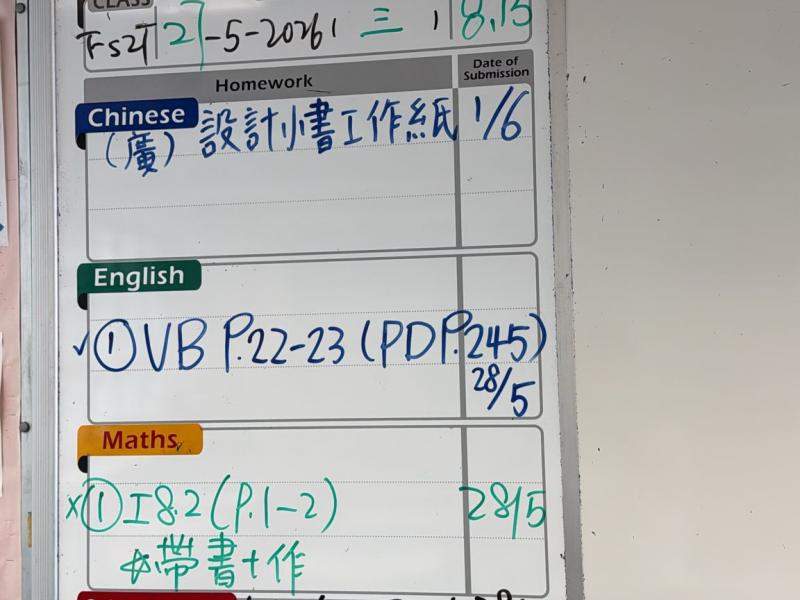 CLASS
Fs2T 27-5-2026 三 8,15
Homework
Date of Submission
Chinese
(廣) 設計小書工作紙 1/6
English
✓ ① VB P.22-23 (PD P.245)
28/5
Maths
x ① I8.2 (P.1-2) 28/5
☆帶書+作